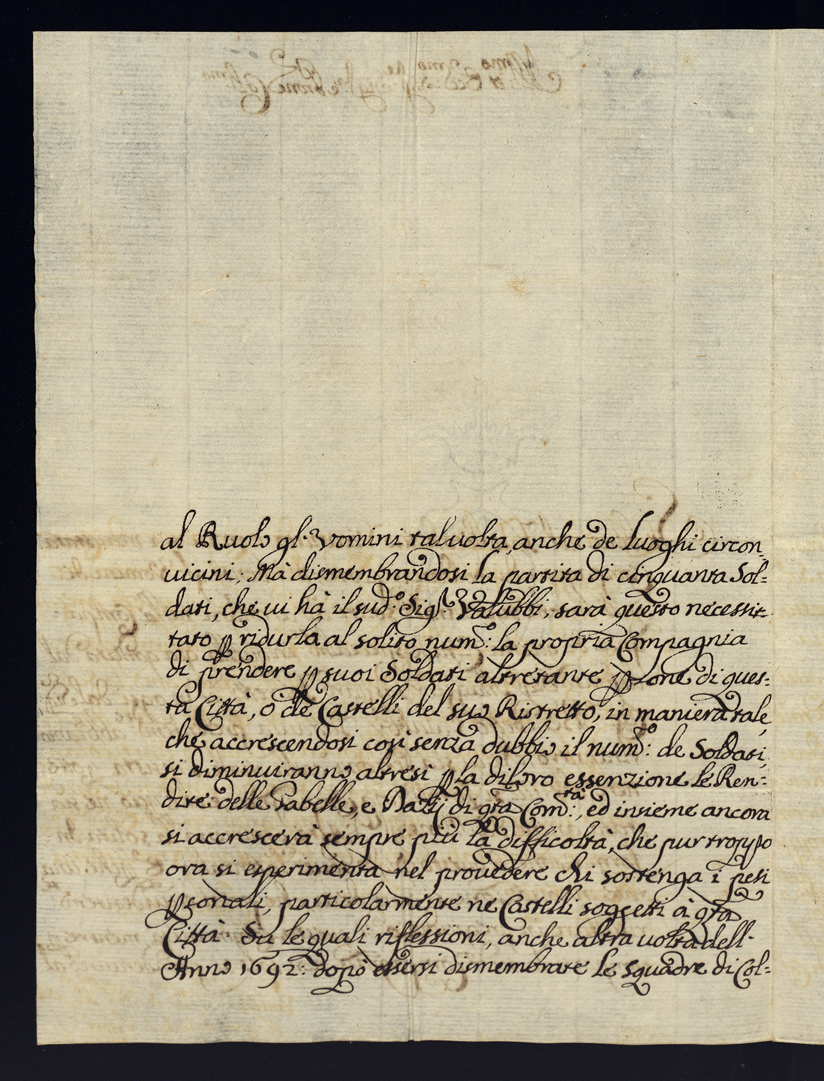 al Ruolo gl. Vomini talvolta, anche de luoghi circon,
vicini; Mà dismembrandosi la partita di cinquanta Sol=
dati, che vi hà il sud.o Sig.r Valubbi, sarà questo necessit=
tato p ridurla al solito num.o la propria Compagnia
di prendere p suoi Soldati altretante psone di ques=
ta Città, o de Castelli del suo Ristretto, in maniera tale,
che accrescendosi così senza dubbio il num.o: de Soldati,
si diminuiranno altresi p la di loro essenzione le Ren=
dite delle Gabelle, e Datij di gta Com.tà, ed insieme ancora
si accrescerà sempre più la difficoltà, che pur troppo
ora si esperimenta nel provedere chi sostenga i pesi
psonali, particolarmente ne Castelli soggetti à gta
Città. Sù le quali riflessioni, anche altra volta dell.
Anno 1692: dopò essersi dismembrate le squadre di Col=